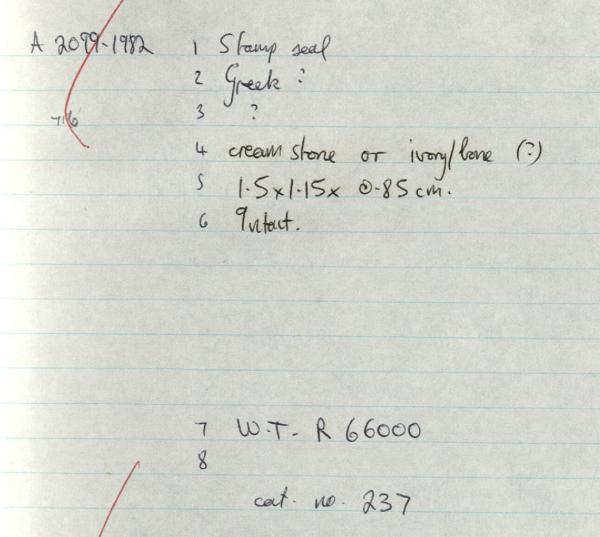 A 2099-1982 1 Stamp seal
2 Greek ?
3 ?
716
4 cream stone or ivory/bone (?)
5 1.5 x 1.15 x 0.85 cm.
6 Intact.
7 W.T. R 66000
8
cat. no. 237